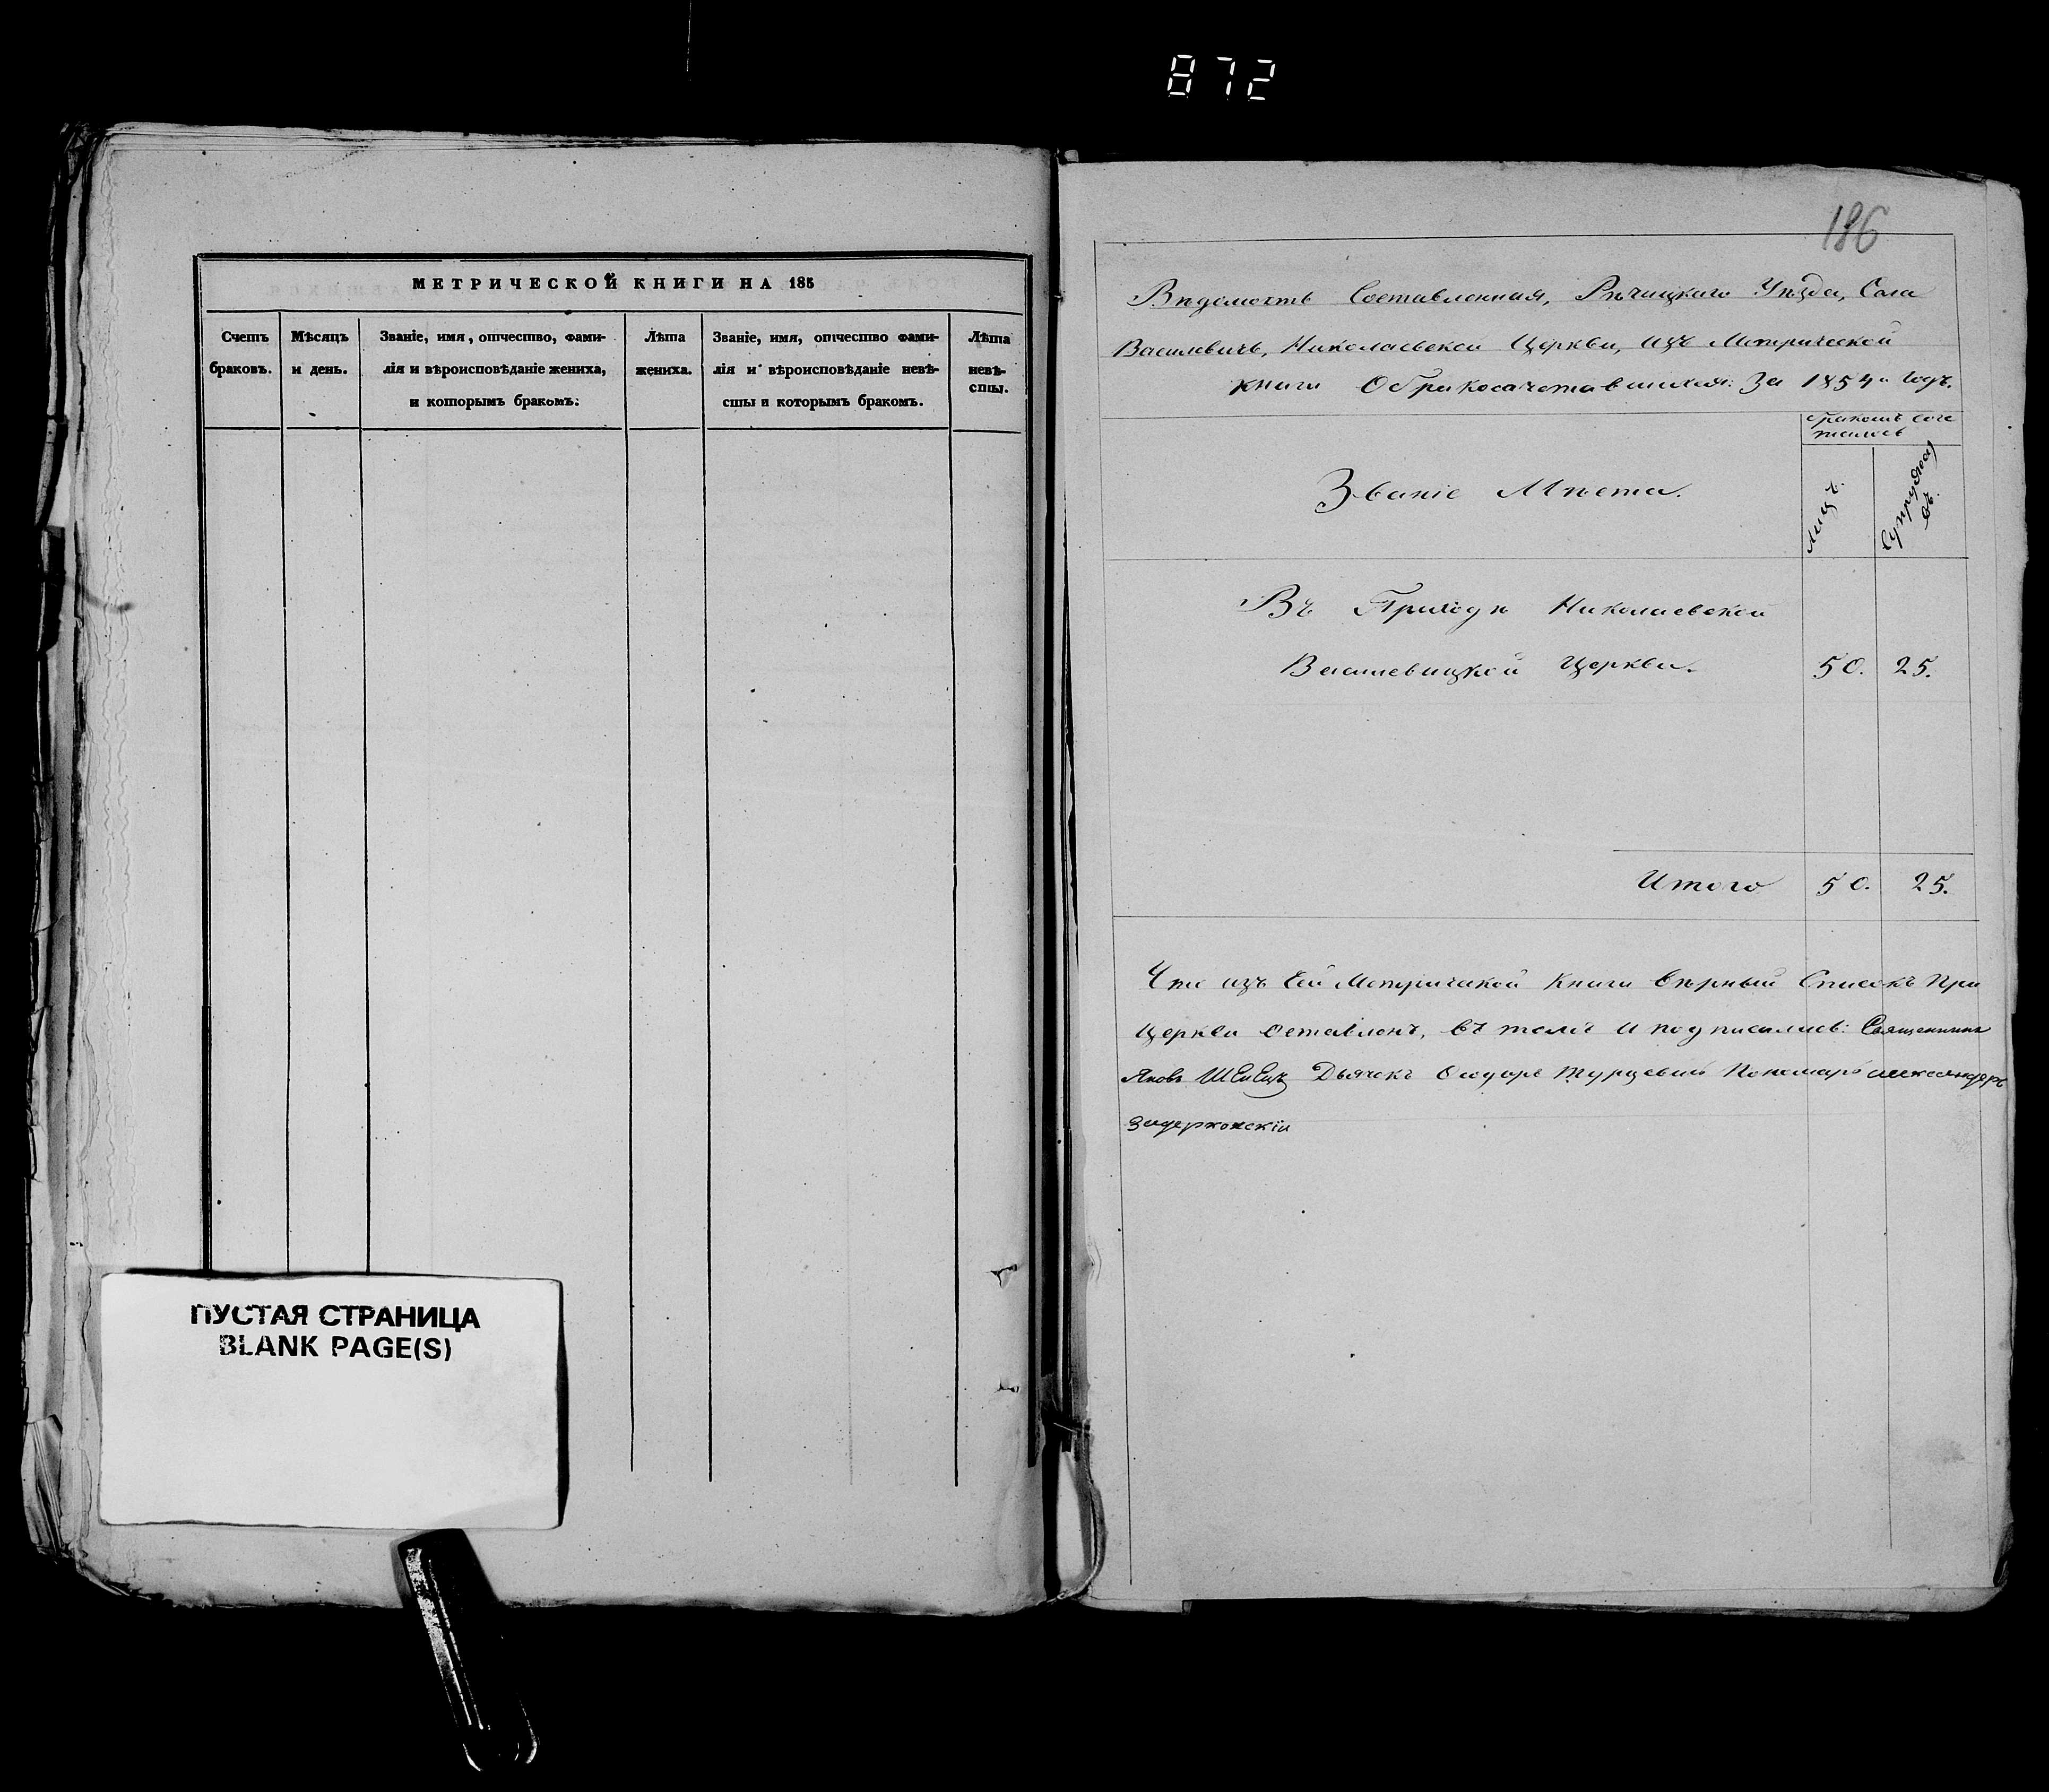 872
МЕТРИЧЕСКОЙ КНИГИ НА 185
Счетъ браковъ.
Мѣсяцъ и день.
Званіе, имя, отчество, фами-
лія и вѣроисповѣданіе жениха,
и которымъ бракомъ.
Лѣта
жениха.
Званіе, имя, отчество фами-
лія и вѣроисповѣданіе невѣ-
сты и которымъ бракомъ.
Лѣта
невѣ-
сты.
ПУСТАЯ СТРАНИЦА
BLANK PAGE(S)
186
Вѣдомость Составленная, Рѣчицкаго Уѣзда, Села
Василевичъ, Николаевской Церкви, изъ Метрической
книги О бракосочетавшихся: За 1854й Годъ.
бракомъ соче
тилось
Званіе Мѣста.
Лицъ.
Супружес
въ.
Въ Приходѣ Николаевской
Василевицкой Церкви. 50. 25.
Итого 50. 25.
Что изъ Сей Метрической Книги вѣрный Списокъ При
Церкви Оставленъ, въ томъ и подписались: Священникъ
Яковъ Дьячекъ Ѳеодоръ Турцевичъ Пономарь Александръ